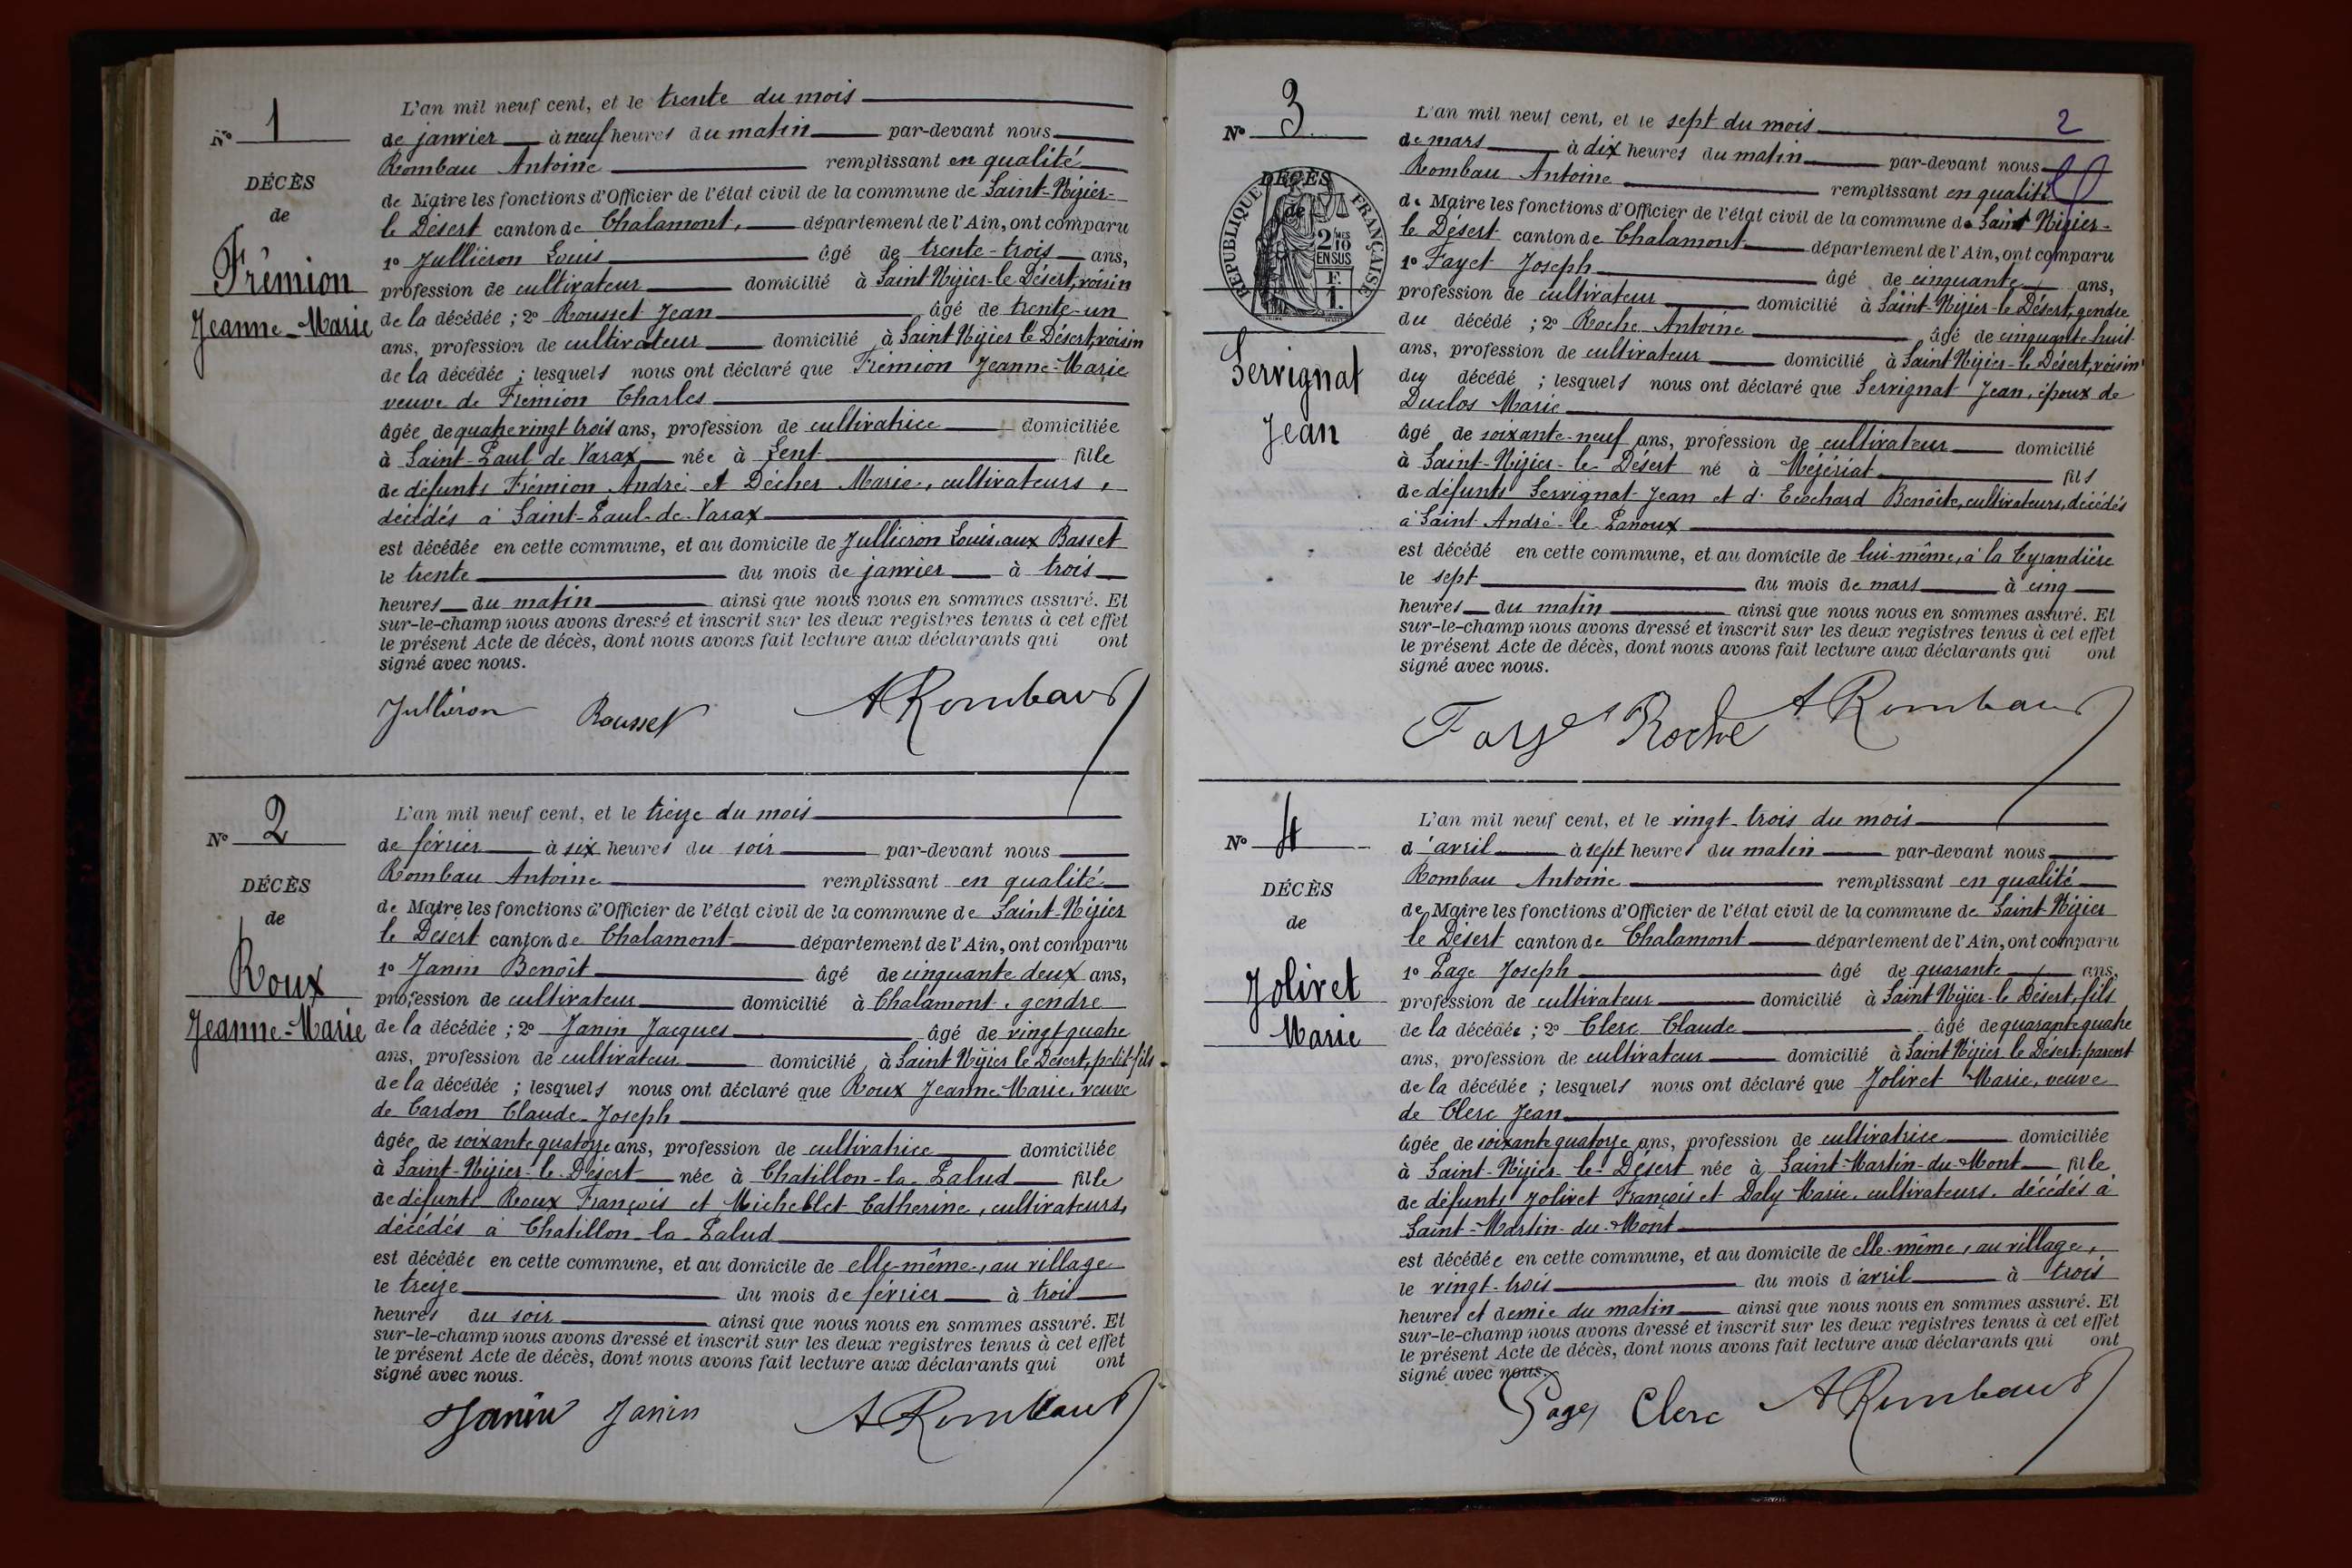 N° 1
DÉCÈS
de
Frémion
Jeanne-Marie
L'an mil neuf cent, et le trente du mois
de janvier à neuf heures du matin par-devant nous
Rombau Antoine remplissant en qualité
de Maire les fonctions d'Officier de l'état civil de la commune de Saint-Nizier-
le Désert canton de Chalamont, département de l'Ain, ont comparu
1° Jullieron Louis âgé de trente-trois ans,
profession de cultivateur domicilié à Saint-Nizier-le Désert, voisin
de la décédée ; 2° Rousset Jean âgé de trente-un
ans, profession de cultivateur domicilié à Saint Nizier le Désert, voisin
de la décédée ; lesquels nous ont déclaré que Frémion Jeanne-Marie
veuve de Frémion Charles
âgée de quatre vingt trois ans, profession de cultivatrice domiciliée
à Saint-Paul de Varax née à Lent fille
de défunts Frémion André et Décher Marie, cultivateurs,
décédés à Saint-Paul-de-Varax
est décédée en cette commune, et au domicile de Jullieron Louis, aux Basset
le trente du mois de janvier à trois
heures du matin ainsi que nous nous en sommes assuré. Et
sur-le-champ nous avons dressé et inscrit sur les deux registres tenus à cet effet
le présent Acte de décès, dont nous avons fait lecture aux déclarants qui ont
signé avec nous.
Julliéron Rousset A Rombaud
N° 2
DÉCÈS
de
Roux
Jeanne-Marie
L'an mil neuf cent, et le treize du mois
de février à six heures du soir par-devant nous
Rombau Antoine remplissant en qualité
de Maire les fonctions d'Officier de l'état civil de la commune de Saint-Nizier
le Désert canton de Chalamont département de l'Ain, ont comparu
1° Janin Benoît âgé de cinquante deux ans,
profession de cultivateur domicilié à Chalamont, gendre
de la décédée ; 2° Janin Jacques âgé de vingt quatre
ans, profession de cultivateur domicilié à Saint Nizier le Désert, petit-fils
de la décédée ; lesquels nous ont déclaré que Roux Jeanne Marie, veuve
de Cardon Claude-Joseph
âgée de soixante quatorze ans, profession de cultivatrice domiciliée
à Saint-Nizier-le-Désert née à Chatillon-la-Palud fille
de défunts Roux François et Micheblet Catherine, cultivateurs,
décédés à Chatillon-la-Palud
est décédée en cette commune, et au domicile de elle-même, au village
le treize du mois de février à trois
heures du soir ainsi que nous nous en sommes assuré. Et
sur-le-champ nous avons dressé et inscrit sur les deux registres tenus à cet effet
le présent Acte de décès, dont nous avons fait lecture aux déclarants qui ont
signé avec nous.
Janin Janin A Rombaud
2
N° 3
DÉCÈS
de
RÉPUBLIQUE FRANÇAISE
2/10MES
EN SUS
F.
1.
Servignat
Jean
L'an mil neuf cent, et le sept du mois
de mars à dix heures du matin par-devant nous
Rombau Antoine remplissant en qualité
de Maire les fonctions d'Officier de l'état civil de la commune de Saint Nizier-
le Désert canton de Chalamont département de l'Ain, ont comparu
1° Fayet Joseph âgé de cinquante ans,
profession de cultivateur domicilié à Saint-Nizier-le Désert, gendre
du décédé ; 2° Roche Antoine âgé de cinquante huit
ans, profession de cultivateur domicilié à Saint Nizier-le Désert, voisin
du décédé ; lesquels nous ont déclaré que Servignat Jean, époux de
Duclos Marie
âgé de soixante-neuf ans, profession de cultivateur domicilié
à Saint-Nizier-le-Désert né à Mézériat fils
de défunts Servignat Jean et d' Ecochard Benoîte, cultivateurs, décédés
à Saint André-le-Panoux
est décédé en cette commune, et au domicile de lui-même, à la Tyrandière
le sept du mois de mars à cinq
heures du matin ainsi que nous nous en sommes assuré. Et
sur-le-champ nous avons dressé et inscrit sur les deux registres tenus à cet effet
le présent Acte de décès, dont nous avons fait lecture aux déclarants qui ont
signé avec nous.
Roche A Rombaud
N° 4
DÉCÈS
de
Jolivet
Marie
L'an mil neuf cent, et le vingt-trois du mois
d'avril à sept heures du matin par-devant nous
Rombau Antoine remplissant en qualité
de Maire les fonctions d'Officier de l'état civil de la commune de Saint-Nizier
le Désert canton de Chalamont département de l'Ain, ont comparu
1° Page Joseph âgé de quarante ans,
profession de cultivateur domicilié à Saint Nizier-le Désert, fils
de la décédée ; 2° Clerc Claude âgé de quarante quatre
ans, profession de cultivateur domicilié à Saint Nizier le Désert, parent
de la décédée ; lesquels nous ont déclaré que Jolivet Marie, veuve
de Clerc Jean
âgée de soixante quatorze ans, profession de cultivatrice domiciliée
à Saint-Nizier-le-Désert née à Saint-Martin-du-Mont fille
de défunts Jolivet François et Daly Marie, cultivateurs, décédés à
Saint-Martin-du-Mont
est décédée en cette commune, et au domicile de elle-même, au village,
le vingt-trois du mois d'avril à trois
heures et demie du matin ainsi que nous nous en sommes assuré. Et
sur-le-champ nous avons dressé et inscrit sur les deux registres tenus à cet effet
le présent Acte de décès, dont nous avons fait lecture aux déclarants qui ont
signé avec nous.
Page Clerc A Rombaud